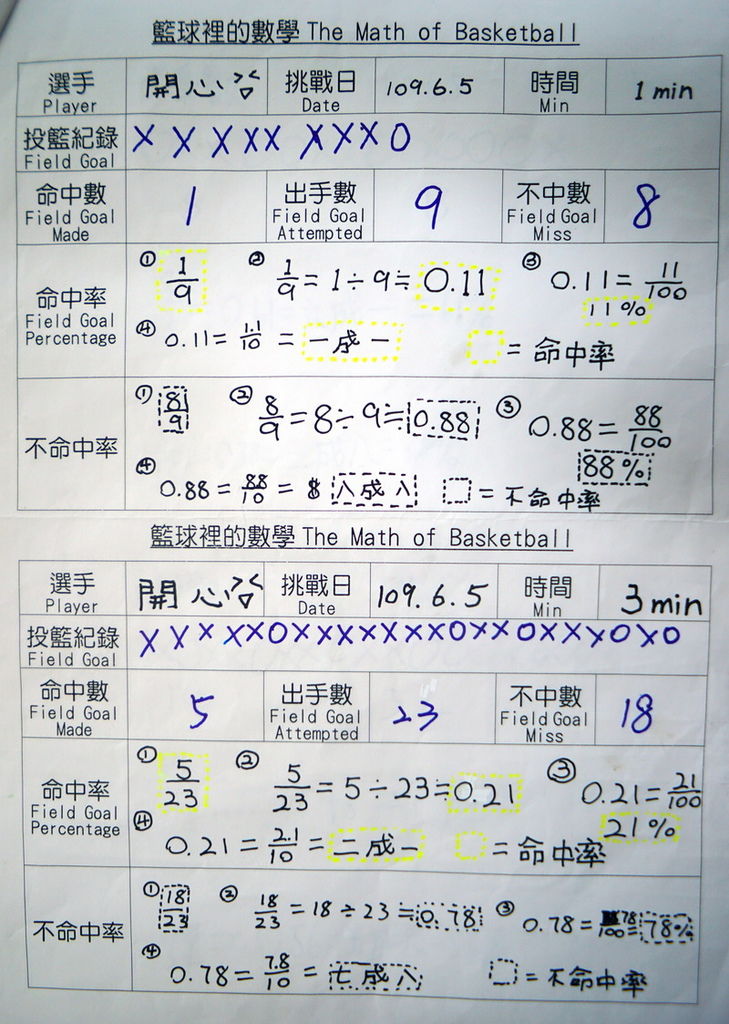 籃球裡的數學 The Math of Basketball
選手 開心 挑戰日 109.6.5 時間 1 min
Player Date Min
投籃紀錄 X X X X X X X X O
Field Goal
命中數 1 出手數 9 不中數 8
Field Goal Made Field Goal Attempted Field Goal Miss
命中率 ① 1/9 ② 1/9 = 1 ÷ 9 ≒ 0.11 ③ 0.11 = 11/100
Field Goal Percentage 11%
④ 0.11 = 1.1/10 = 一成一 = 命中率
不命中率 ① 8/9 ② 8/9 = 8 ÷ 9 ≒ 0.88 ③ 0.88 = 88/100
88%
④ 0.88 = 88/10 = 八成八 = 不命中率
籃球裡的數學 The Math of Basketball
選手 開心 挑戰日 109.6.5 時間 3 min
Player Date Min
投籃紀錄 X X X X X O X X X X X X X O X X O X X X O X O
Field Goal
命中數 5 出手數 23 不中數 18
Field Goal Made Field Goal Attempted Field Goal Miss
命中率 ① 5/23 ② 5/23 = 5 ÷ 23 ≒ 0.21 ③ 0.21 = 21/100
Field Goal Percentage 21%
④ 0.21 = 2.1/10 = 二成一 = 命中率
不命中率 ① 18/23 ② 18/23 = 18 ÷ 23 ≒ 0.78 ③ 0.78 = 78/100 = 78%
④ 0.78 = 7.8/10 = 七成八 = 不命中率